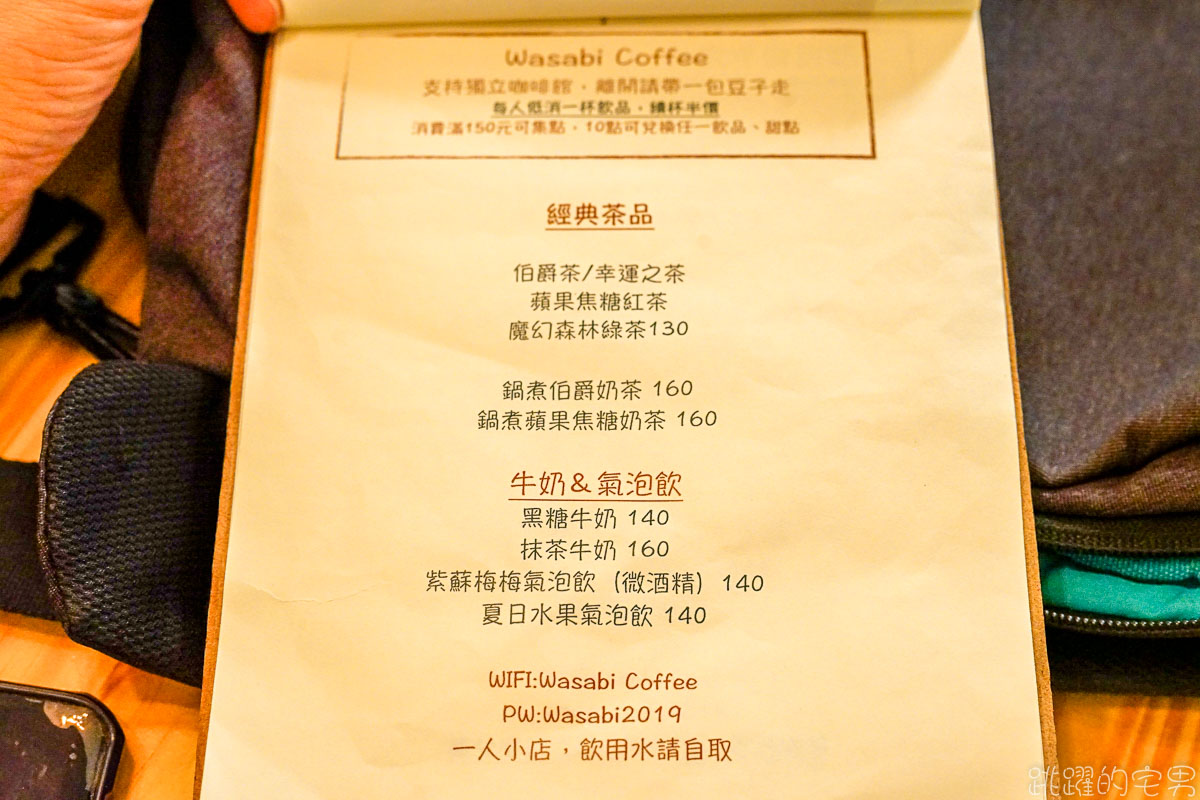 Wasabi Coffee
支持獨立咖啡館，離開請帶一包豆子走
每人低消一杯飲品，續杯半價
消費滿150元可集點，10點可兌換任一飲品、甜點
經典茶品
伯爵茶/幸運之茶
蘋果焦糖紅茶
魔幻森林綠茶130
鍋煮伯爵奶茶 160
鍋煮蘋果焦糖奶茶 160
牛奶＆氣泡飲
黑糖牛奶 140
抹茶牛奶 160
紫蘇梅梅氣泡飲（微酒精） 140
夏日水果氣泡飲 140
WIFI:Wasabi Coffee
PW:Wasabi2019
一人小店，飲用水請自取
跳躍的宅男